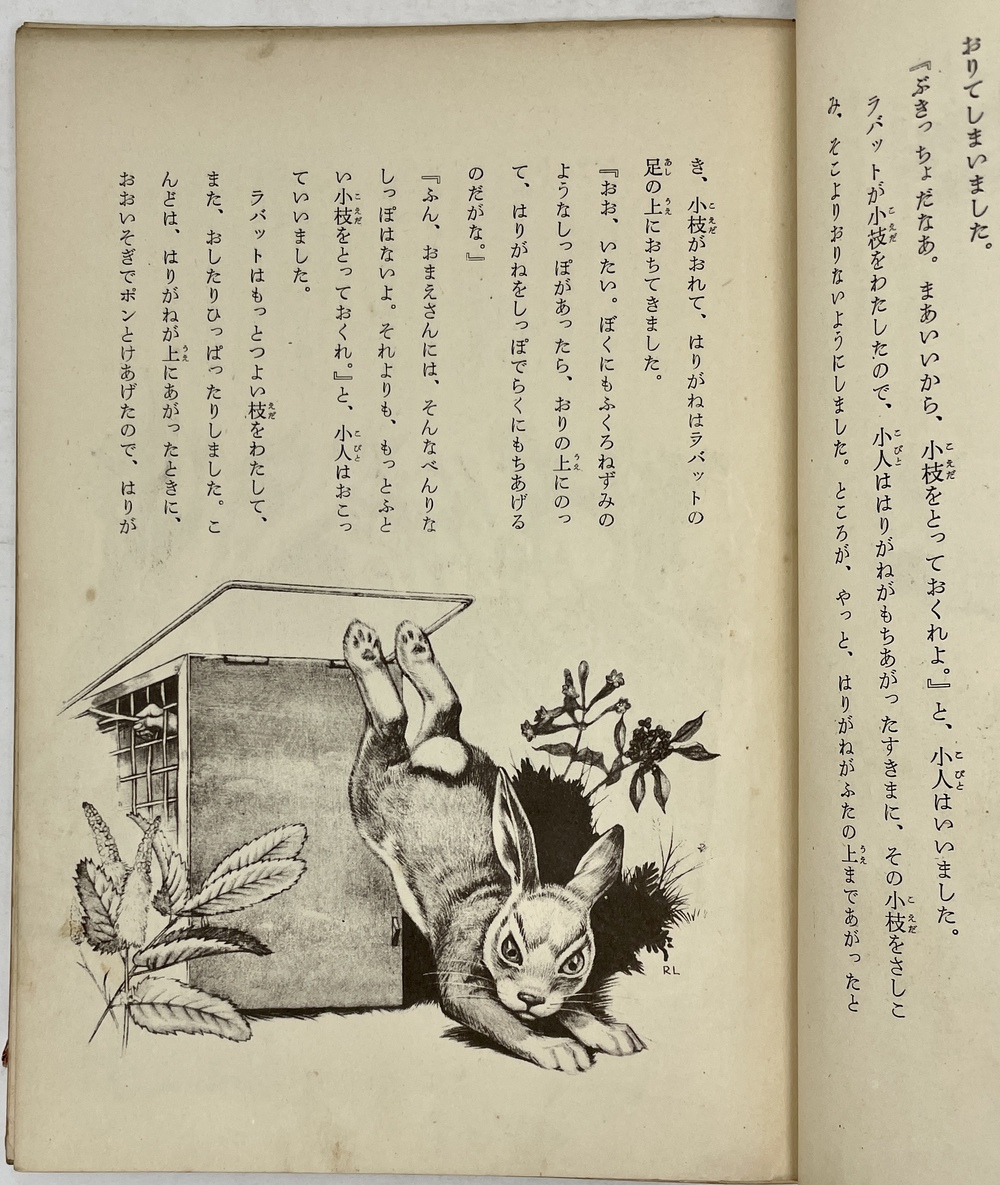 おりてしまいました。
『ぶきっちょだなあ。まあいいから、小枝をとっておくれよ。』と、小人はいいました。
ラバットが小枝をわたしたので、小人ははりがねがもちあがったすきまに、その小枝をさしこ
み、そこよりおりないようにしました。ところが、やっと、はりがねがふたの上まであがったと
き、小枝がおれて、はりがねはラバットの
足の上におちてきました。
『おお、いたい。ぼくにもふくろねずみの
ようなしっぽがあったら、おりの上にのっ
て、はりがねをしっぽでらくにもちあげる
のだがな。』
『ふん、おまえさんには、そんなべんりな
しっぽはないよ。それよりも、もっとふと
い小枝をとっておくれ。』と、小人はおこっ
ていいました。
ラバットはもっとつよい枝をわたして、
また、おしたりひっぱったりしました。こ
んどは、はりがねが上にあがったときに、
おおいそぎでポンとけあげたので、はりが
RL